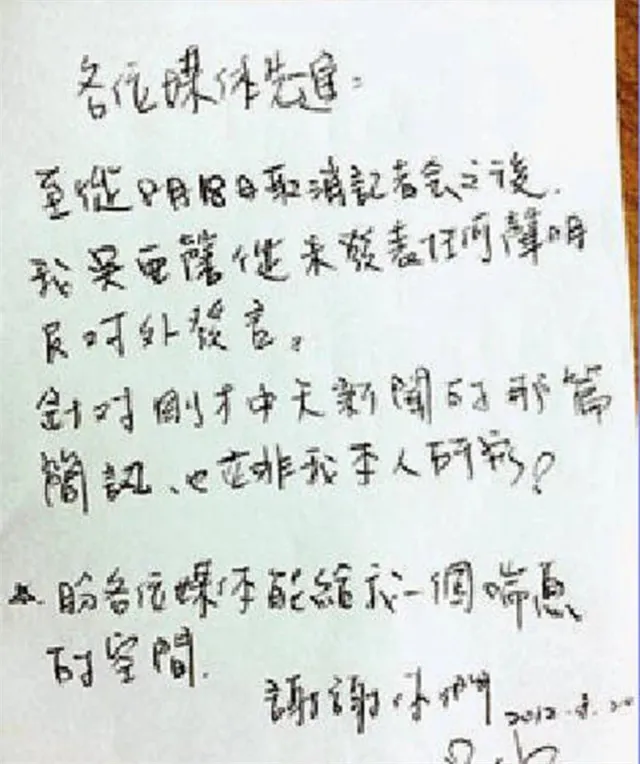 各位媒体先進:
至從8月18日取消記者会之後.
我吳亞馨從未發表任何聲明
及对外發言。
針对剛才中天新聞的那篇
簡訊、也並非我本人所寫!
盼各位媒体能給我一個喘息
的空間.
謝謝你們 2012.8.20